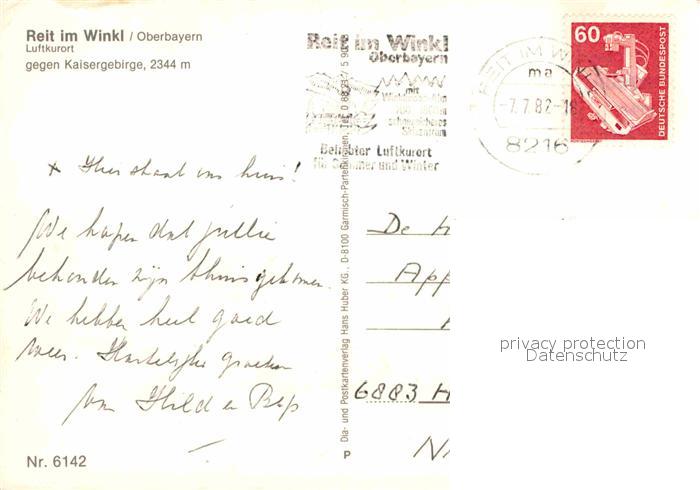 Reit im Winkl / Oberbayern
Luftkurort
gegen Kaisergebirge, 2344 m
Reit im Winkl
Oberbayern
mit
Beliebter Luftkurort
für Sommer und Winter
REIT IM W
ma
-7.7.82-18
8216
60
DEUTSCHE BUNDESPOST
x Hier staat ons huis!
We hopen dat jullie
behouden zijn thuisgekomen.
We hebben heel goed
weer. Hartelijke groeten
van Hild en Bep
Dia- und Postkartenverlag Hans Huber KG., D-8100 Garmisch-Partenkirchen, Tel. 0 88 21/ 5
De H
App
6883 H
N
privacy protection
Datenschutz
Nr. 6142
P